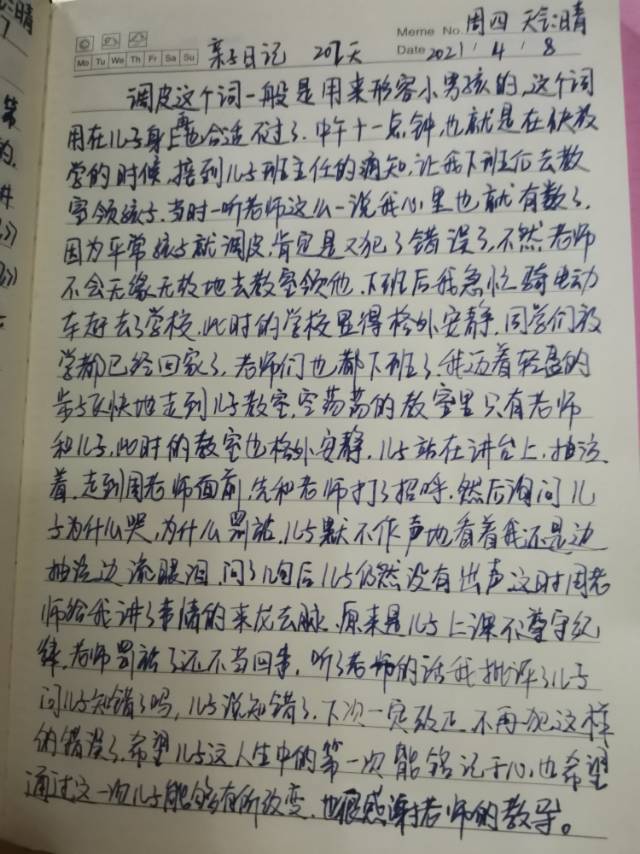 周四 天气:晴
Meme No.
Mo Tu We Th Fr Sa Su
亲子日记 207天
Date 2021/4/8
调皮这个词一般是用来形容小男孩的,这个词
用在儿子身上再合适不过了.中午十一点钟,也就是在快放
学的时候,接到儿子班主任的通知,让我下班后去教
室领孩子.当时一听老师这么一说我心里也就有数了,
因为平常孩子就调皮,肯定是又犯了错误了,不然老师
不会无缘无故地去教室领他.下班后我急忙骑电动
车赶去了学校,此时的学校显得格外安静,同学们放
学都已经回家了,老师们也都下班了,我迈着轻盈的
步子飞快地走到儿子教室,空荡荡的教室里只有老师
和儿子,此时的教室也格外安静.儿子站在讲台上,抽泣
着,走到周老师面前,先和老师打了招呼.然后询问儿
子为什么哭,为什么罚站,儿子默不作声地看着我还是边
抽泣边流眼泪.问了几句后儿子仍然没有出声这时周老
师给我讲了事情的来龙去脉.原来是儿子上课不尊守纪
律,老师罚站了还不当回事,听了老师的话我批评了儿子
问儿子知错了吗,儿子说知错了.下次一定改正,不再犯这样
的错误了,希望儿子这人生中的第一次能铭记于心,也希望
通过这一次儿子能够有所改变,也很感谢老师的教导。